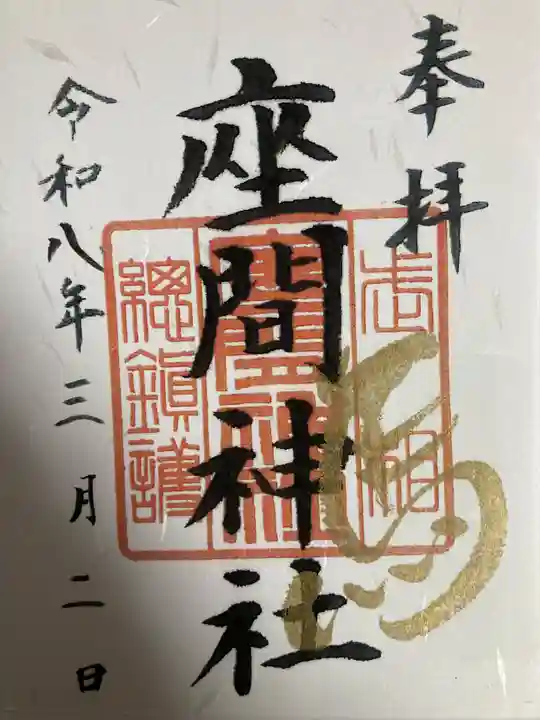 奉拝
座間神社
令和八年三月二日
武相
座間神社
總鎮護